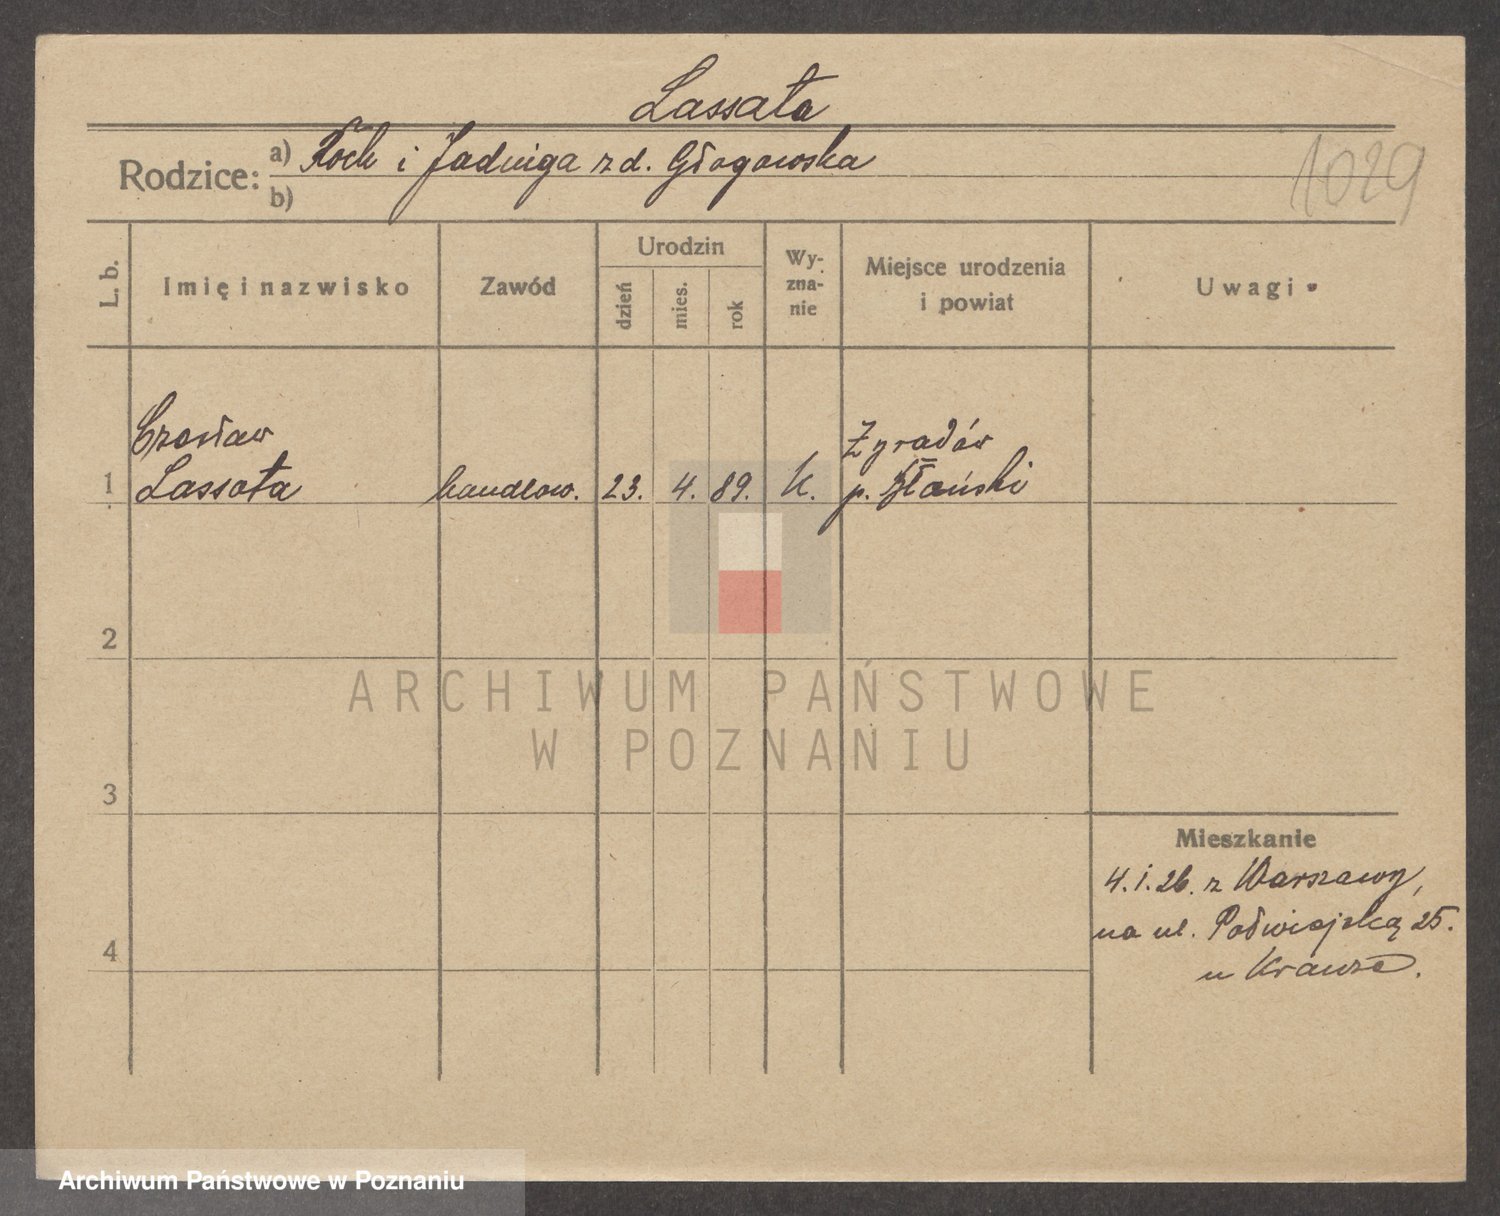 Lassota
Rodzice: a) Roch i Jadwiga z d. Głogowska
b)
1029
L. b.
Imię i nazwisko
Zawód
Urodzin
dzień
mies.
rok
Wy-
zna-
nie
Miejsce urodzenia
i powiat
Uwagi
Czesław
Lassota
1
handlow.
23.
4.
89.
k.
p.
2
3
4
Mieszkanie
4.1.26. z Warszawy,
na ul. Podwiejską 25.
u Krauze.
ARCHIWUM PAŃSTWOWE
W POZNANIU
Archiwum Państwowe w Poznaniu